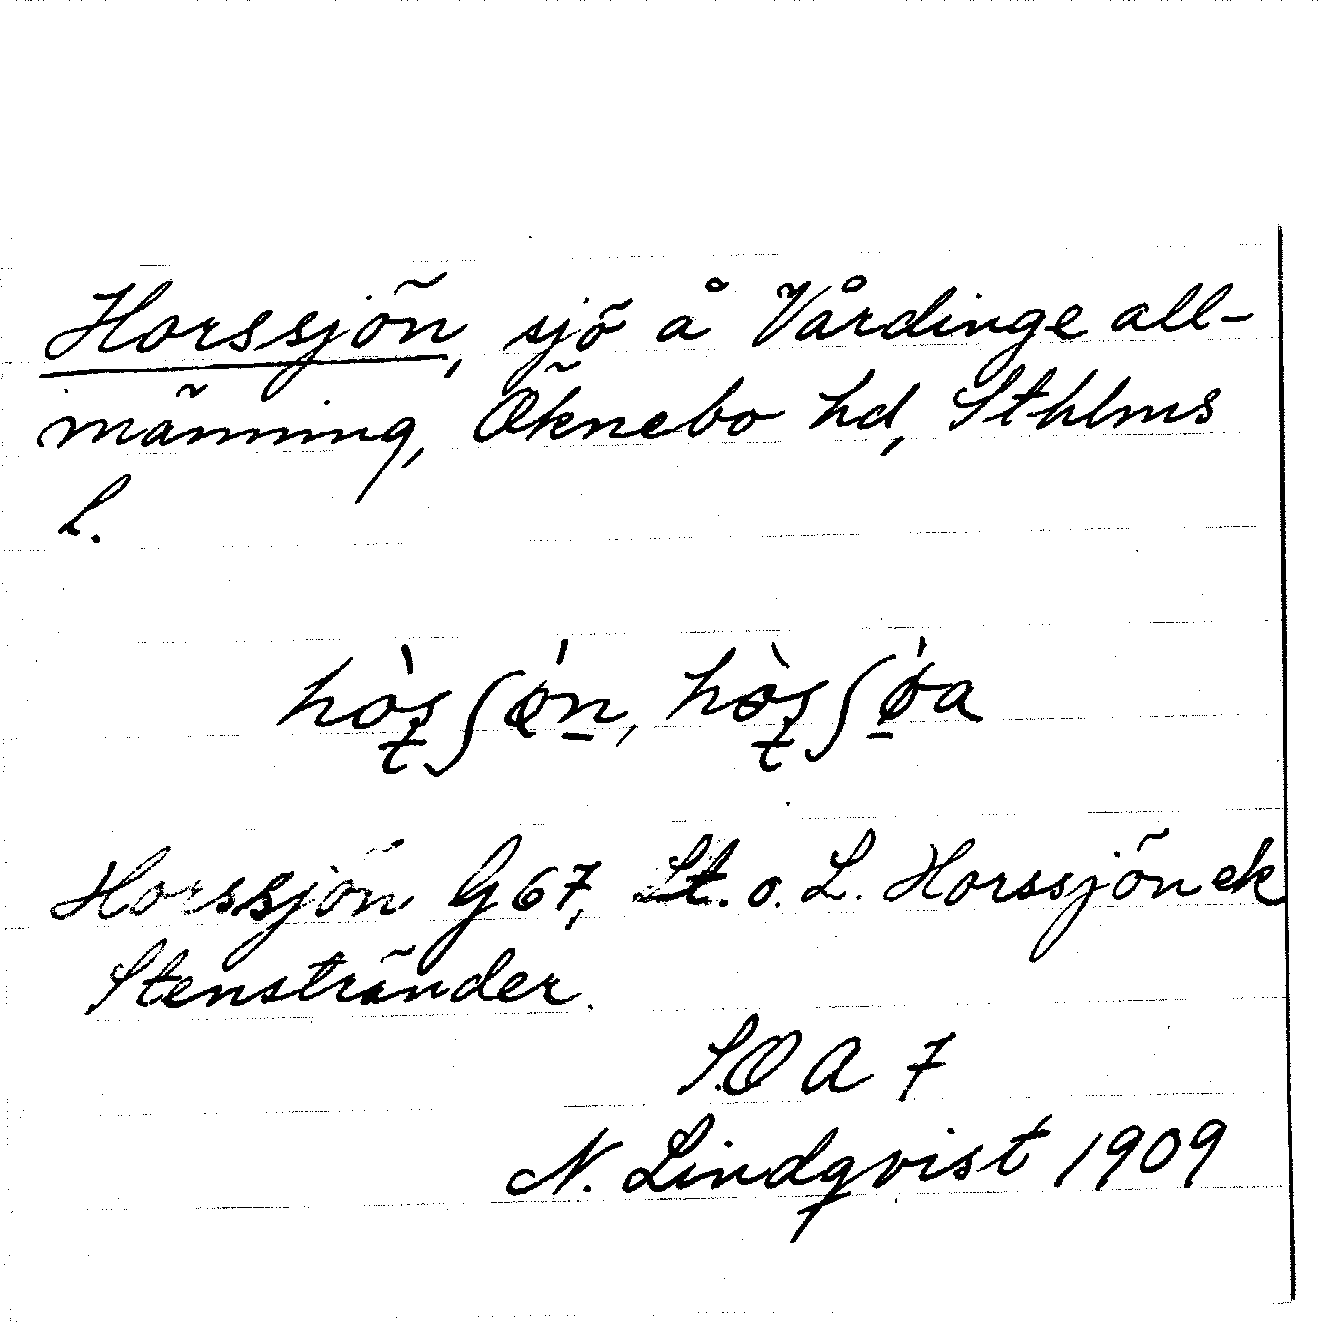 Horssjön, sjö å Vårdinge all-
männing, Öknebo hd, Sthlms
l.
Horssjön G 67, St. o. L. Horssjön ek
Stenstränder.
S.O A 7
N. Lindqvist 1909